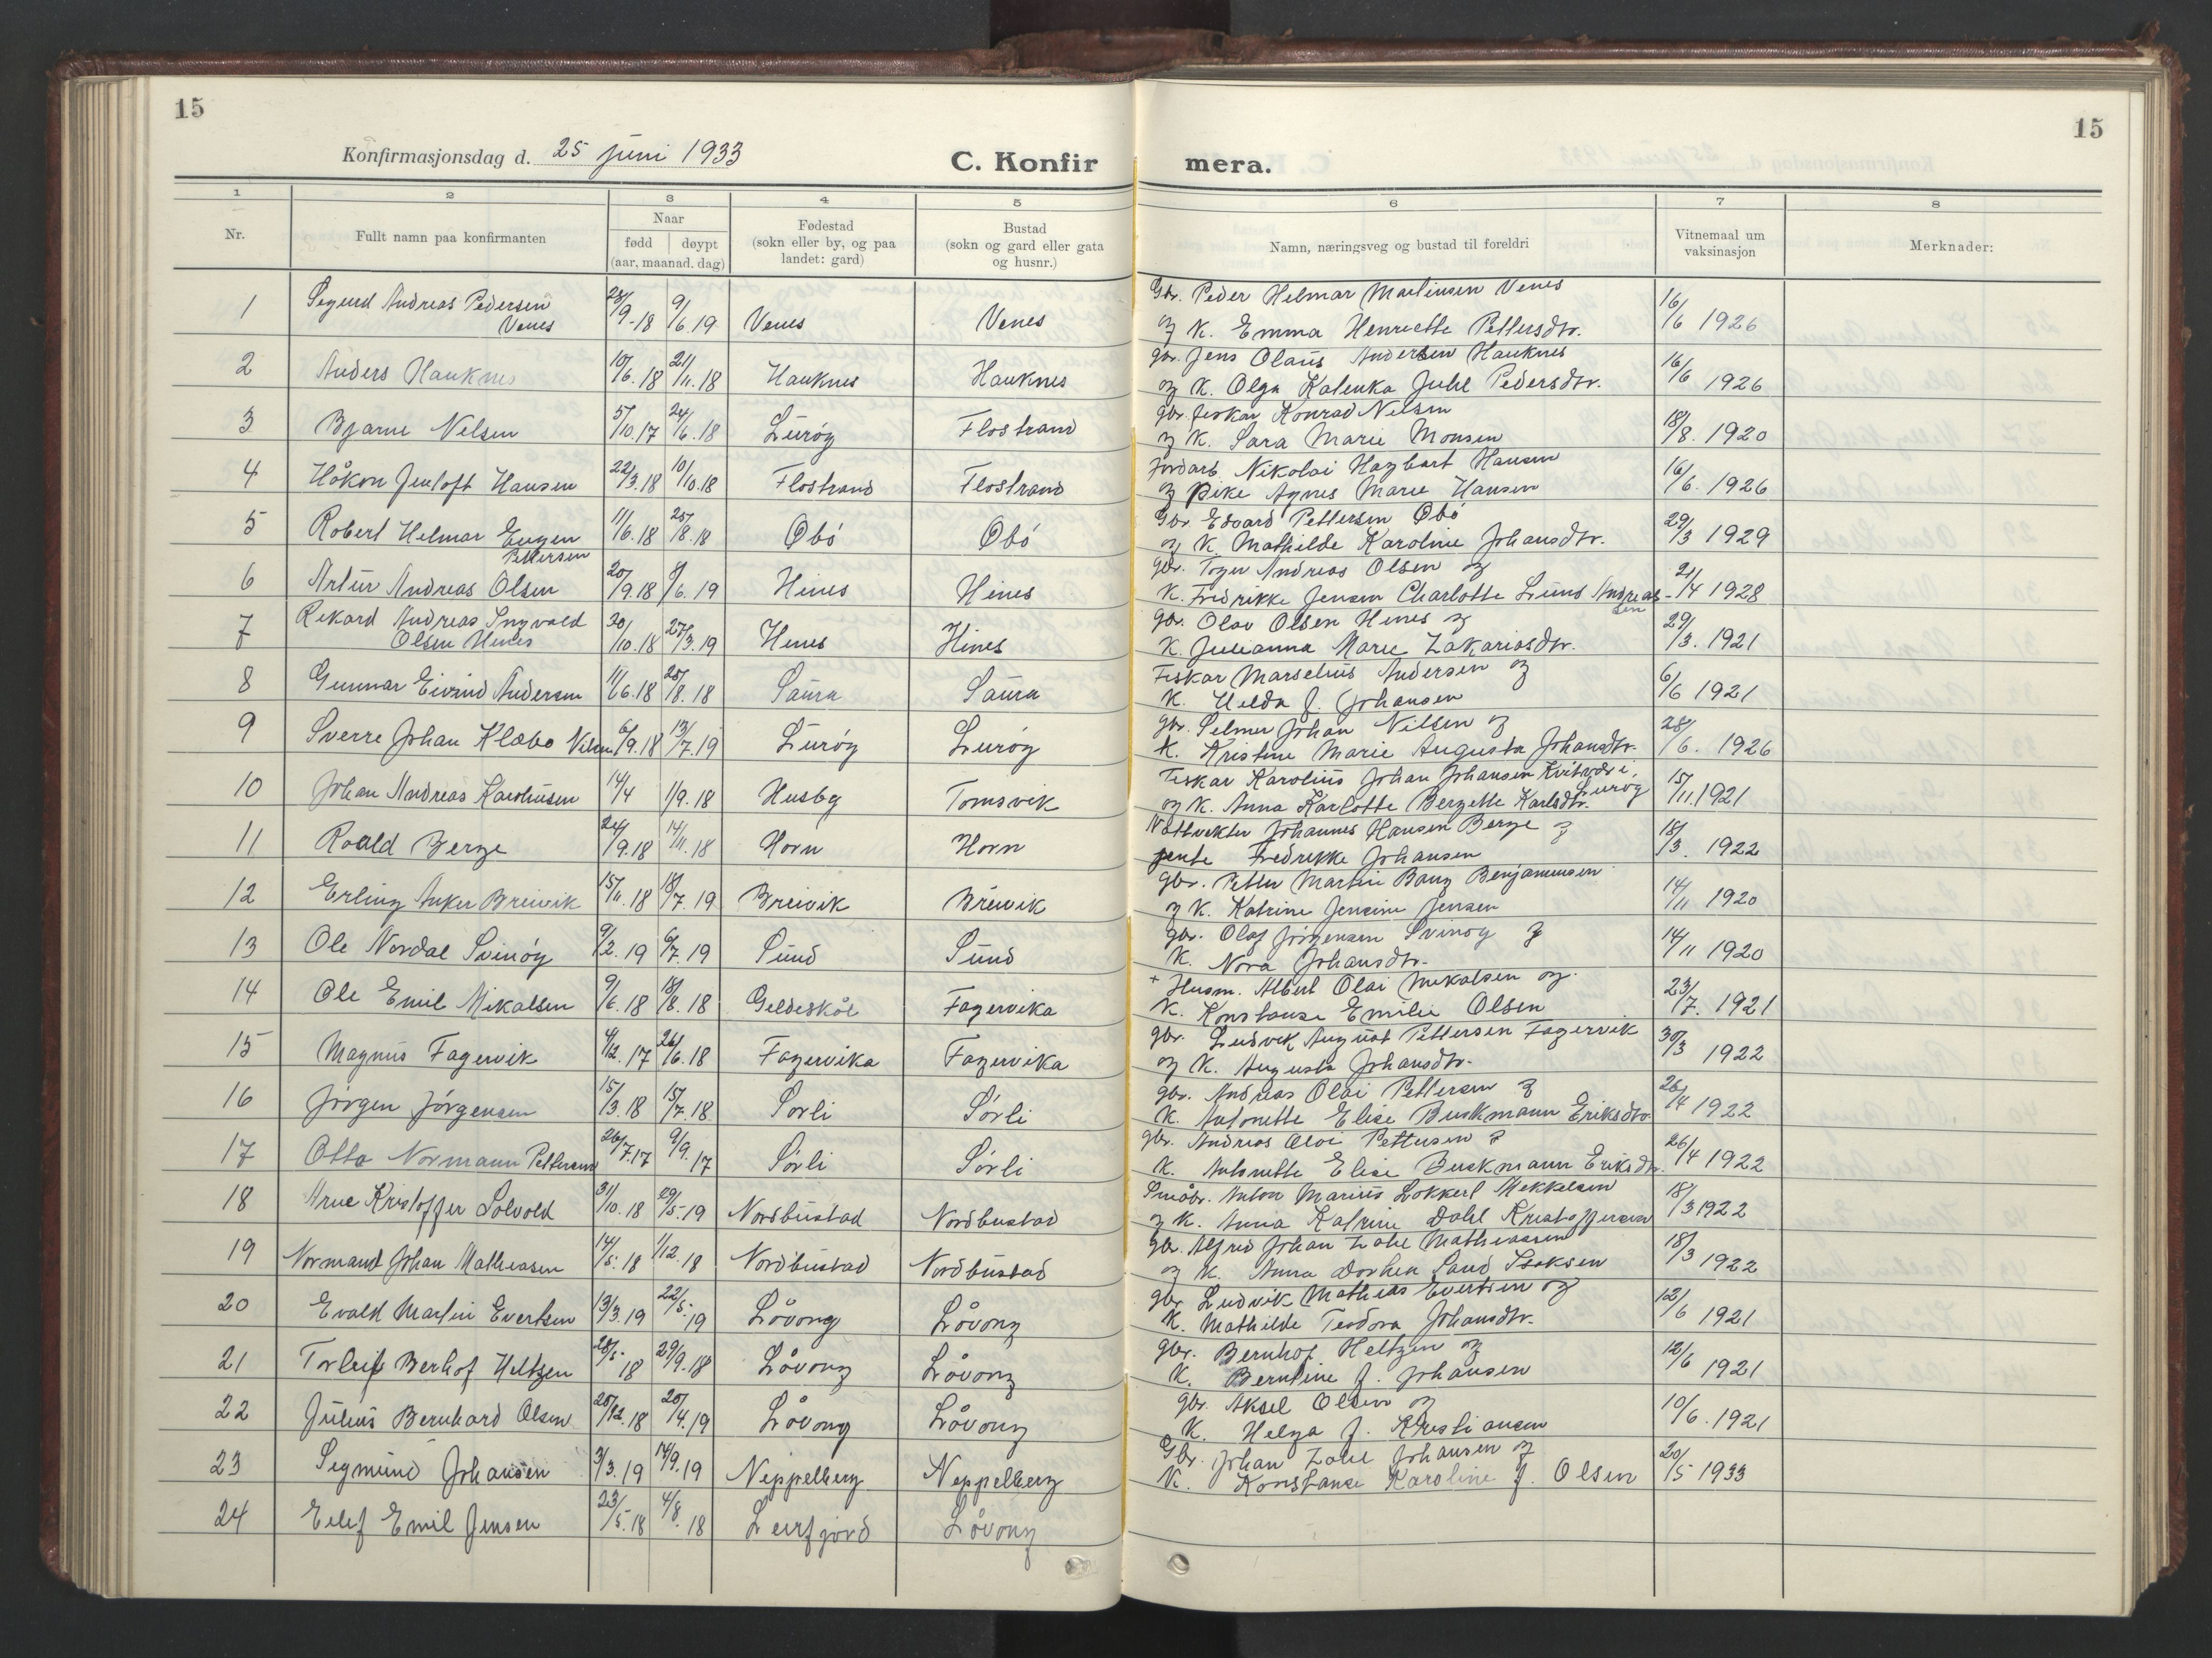 15
15
Konfirmasjonsdag d. 25 juni 1933
C. Konfir mera.
1 2 3 4 5 6 7 8
Nr. Fullt namn paa konfirmanten Naar fødd døypt (aar, maanad. dag) Fødestad (sokn eller by, og paa landet: gard) Bustad (sokn og gard eller gata og husnr.) Namn, næringsveg og bustad til foreldri Vitnemaal um vaksinasjon Merknader:
1 Sigurd Andreas Pedersen Venes 9-18 9/6.19 Venes Venes Gbr. Peder Helmar Martinsen Venes
og K. Emma Henriette Pettersdtr. 16/6 1926
2 Anders Hauknes 10/6.18 21/11.18 Hauknes Hauknes gbr. Jens Olaus Andersen Hauknes
og K. Olga Kalenka Juhl Pedersdtr. 16/6 1926
3 Bjarne Nelsen 5/10.17 24/6.18 Luröy Flostrand gbr. fiskar Konrad Nelsen
og K. Sara Marie Monsen 18/8. 1920
4 Håkon Jenloft Hansen 22/3.18 10/10.18 Flostrand Flostrand jordarb Nikolai Hagbart Hansen
og pike Agnes Marie Hansen 16/6. 1926
5 Robert Helmar Eugen Pettersen 11/6.18 25/8.18 Öbö Öbö Gbr. Edvard Pettersen Öbö
og K. Mathilde Karoline Johansdtr. 29/3 1929
6 Artur Andreas Olsen 20/9.18 9/6.19 Hines Hines gbr. Toger Andreas Olsen og
K. Fredrikke Jensen Charlotte Andreassen 21/4 1928
7 Rikard Andreas Ingvald Olsen Hines 20/10.18 27/3.19 Hines Hines gbr. Olav Olsen Hines og
K. Julianna Marie Zakariasdtr. 29/3. 1921
8 Gunnar Eivind Andersen 11/6.18 25/8.18 Saura Saura Fiskar Marselius Andersen og
K. Helda J. Johansen 6/6 1921
9 Sverre Johan Klæbo Nilsen 6/9.18 13/7.19 Luröy Luröy gbr. Selmer Johan Nilsen og
K. Kristine Marie Augusta Johansdtr. 28/6. 1926
10 Johan Andreas Karolius­en 14/4 1/9.18 Husby Tomsvik Fiskar Karolius Johan Johansen i Luröy
og K. Anna Karlotte Bergette Karlsdtr. 15/11.1921
11 Roald Berge 24/9.18 14/11.18 Horn Horn Nattvekter Johannes Hansen Berge og
jente Fredrikke Johansen 18/3. 1922
12 Erling Anker Breivik 15/11.18 18/7.19 Breivik Breivik gbr. Petter Martin Bang Benjaminsen
og K. Katrine Jensine Jensen 14/11 1920
13 Ole Nordal Svinöy 9/2.19 6/7.19 Sund Sund gbr. Olaf Jörgensen Svinöy og
K. Nora Johansdtr. 14/11 1920
14 Ole Emil Mikalsen 9/6.18 18/8.18 Geldeskål Fagervika + Husm. Albert Olai Mikalsen og
K. Konstanse Emilie Olsen 23/7. 1921
15 Magnus Fagervik 4/12.17 26/6.18 Fagervika Fagervika gbr. Ludvik August Pettersen Fagervik
og K. Augusta Johansdtr. 30/3 1922
16 Jörgen Jörgensen 15/3.18 15/7.18 Sörli Sörli gbr. Andreas Olai Pettersen og
K. Antonette Elise Buskmann Eriksdtr. 26/4 1922
17 Otto Normann Pettersen 26/7.17 9/9.17 Sörli Sörli gbr. Andreas Olai Pettersen og
K. Antonette Elise Buskmann Eriksdtr. 26/4 1922
18 Arne Kristoffer Solvold 31/10.18 29/5.19 Nordbustad Nordbustad Småbr. Anton Marius Lokkert Mekkelsen
og K. Anna Katrine Dahl Kristoffersen 18/3 1922
19 Normand Johan Mathiasen 14/5.18 1/12.18 Nordbustad Nordbustad gbr. Alfred Johan Zahl Mathiassen
og K. Anna Dorthea Sand Isaksen 18/3 1922
20 Evald Martin Evertsen 13/3.19 22/5.19 Lövong Lövong gbr. Ludvik Mathias Evertsen og
K. Mathilde Teodora Johansdtr. 12/6 1921
21 Torleif Berhof Heltzen 28/5 18 29/9.18 Lövong Lövong gbr. Bernhof Heltzen og
K. Berntine J. Johansen 12/6 1921
22 Julius Bernhard Olsen 28/12.18 20/4.19 Lövong Lövong gbr. Aksel Olsen og
K. Helga J. Kristiansen 10/6.1921
23 Sigmund Johansen 3/3.19 14/9.19 Neppelberg Neppelberg Gbr. Johan Zahl Johansen og
K. Konstanse Karoline J. Olsen 20/5 1933
24 Eilif Emil Jensen 23/5.18 4/8.18 Leirfjord Lövong